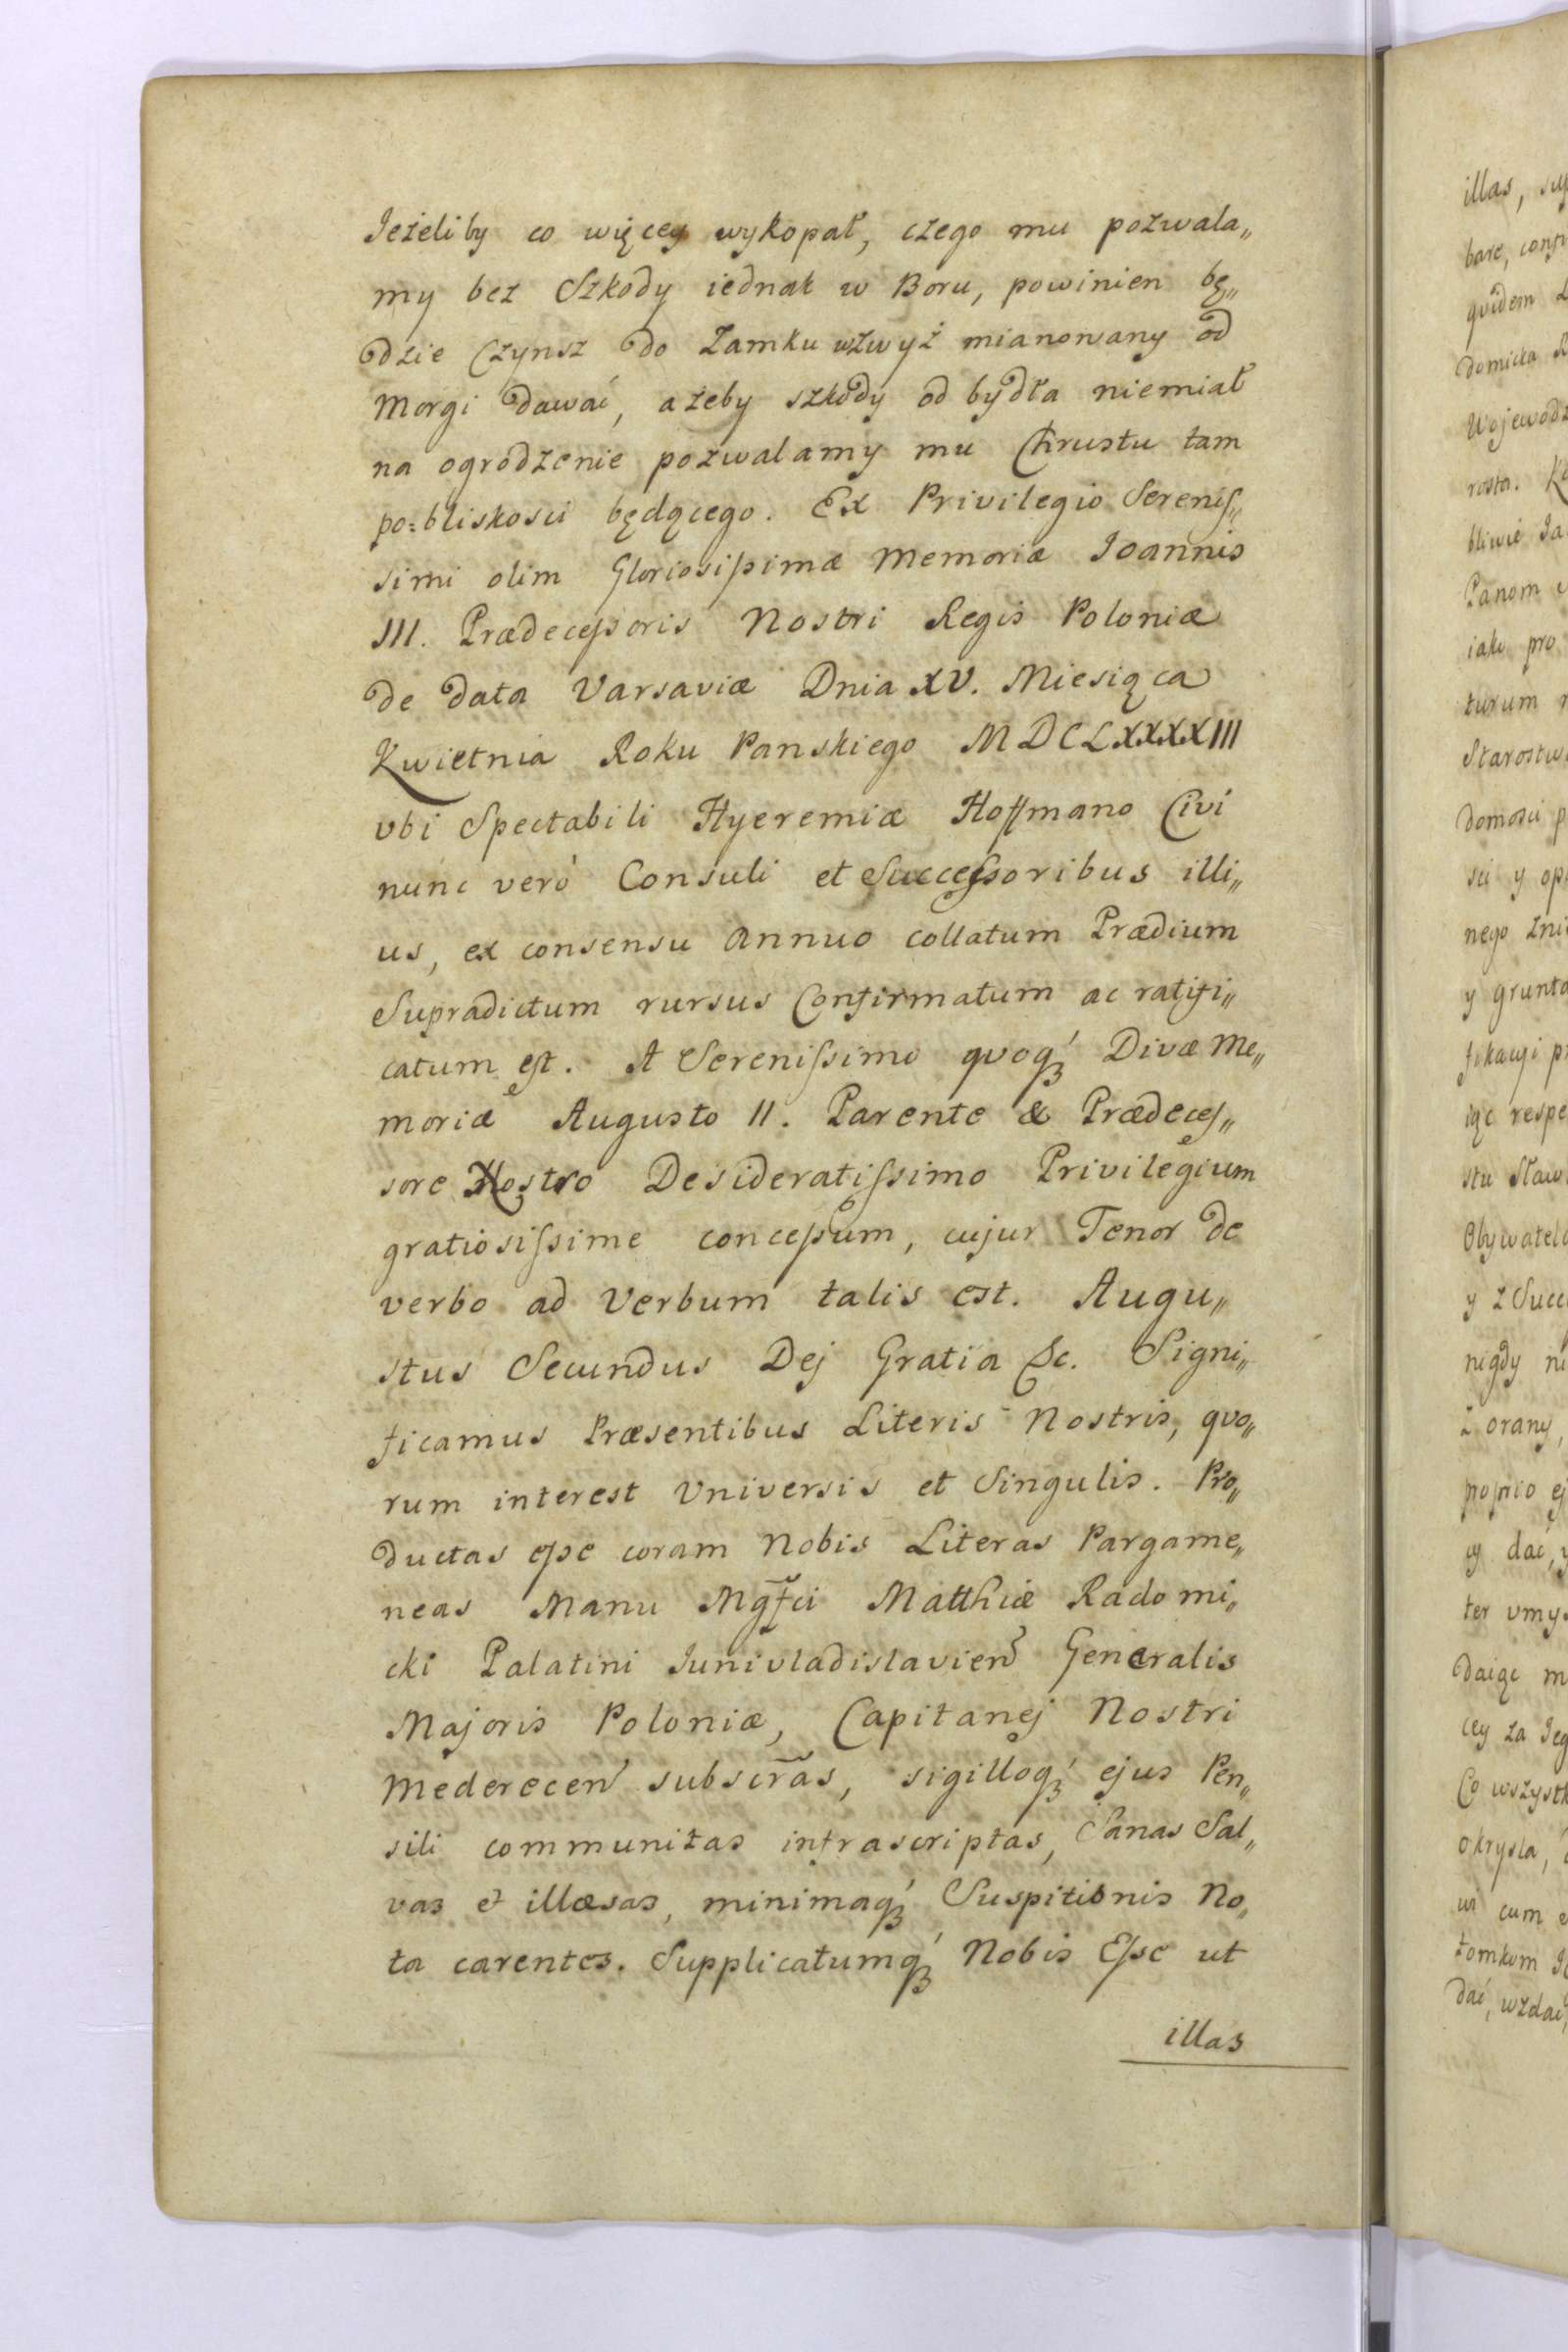 Jeżeliby co więcey wykopał, czego mu pozwala„
my bez Szkody iednak w Boru, powinien bę„
dzie Czynsz do Zamku wzwyż mianowany od
Morgi dawać, ażeby szkody od bydła niemiał
na ogrodzenie pozwalamy mu Chrustu tam
po=bliskosci będącego. Ex Privilegio Sereniſ„
simi olim Gloriosiſsimæ Memoriæ Joannis
III. Prædeceſsoris Nostri Regis Poloniæ
de data Varsaviæ Dnia XV. Miesiąca
Kwietnia Roku Panskiego MDCLXXXXIII
vbi Spectabili Hyeremiæ Hoffmano Civi
nunc verò Consuli et Succeſsoribus illi„
us, ex consensu annuo collatum Prædium
Supradictum rursus Confirmatum ac ratifi„
catum eſt. A Sereniſsimo quoq́ꝫ Divæ Me„
moriæ Augusto II. Parente & Prædeceſ„
sore Nostro Desideratiſsimo Privilegium
gratiosiſsime conceſsum, cujur Tenor de
verbo ad Verbum talis est. Augu„
stus Secundus Dej Gratia &c. Signi„
ficamus Præsentibus Literis Nostris, quo„
rum interest Vniversis et Singulis. Pro„
ductas eſse coram Nobis Literas Pargame„
neas Manu Mgf̃ci Matthiæ Radomi„
cki Palatini Junivladislavien̄ Generalis
Majoris Poloniæ, Capitanej Nostri
Mederecen̄ subscr̃as, sigilloq́ꝫ ejus Pen„
sili communitas infrascriptas, Sanas Sal„
vas et illæsas, minimaq́ꝫ Suspitionis No„
ta carentes. Supplicatumq́ꝫ Nobis Eſse ut
illas
illas,
bare,
quidem
domicka
rosta.
bliwie
Panom
iako pro
turum
domosci
sci y
nego
y
respe
stu Staw
y z Succ
nigdy
Zorany,
cy dać,
ter vmy
daiąc m
cey za Jeg
Co wszystk
okrysla,
wi cum
tomkom
dać, wzdać,